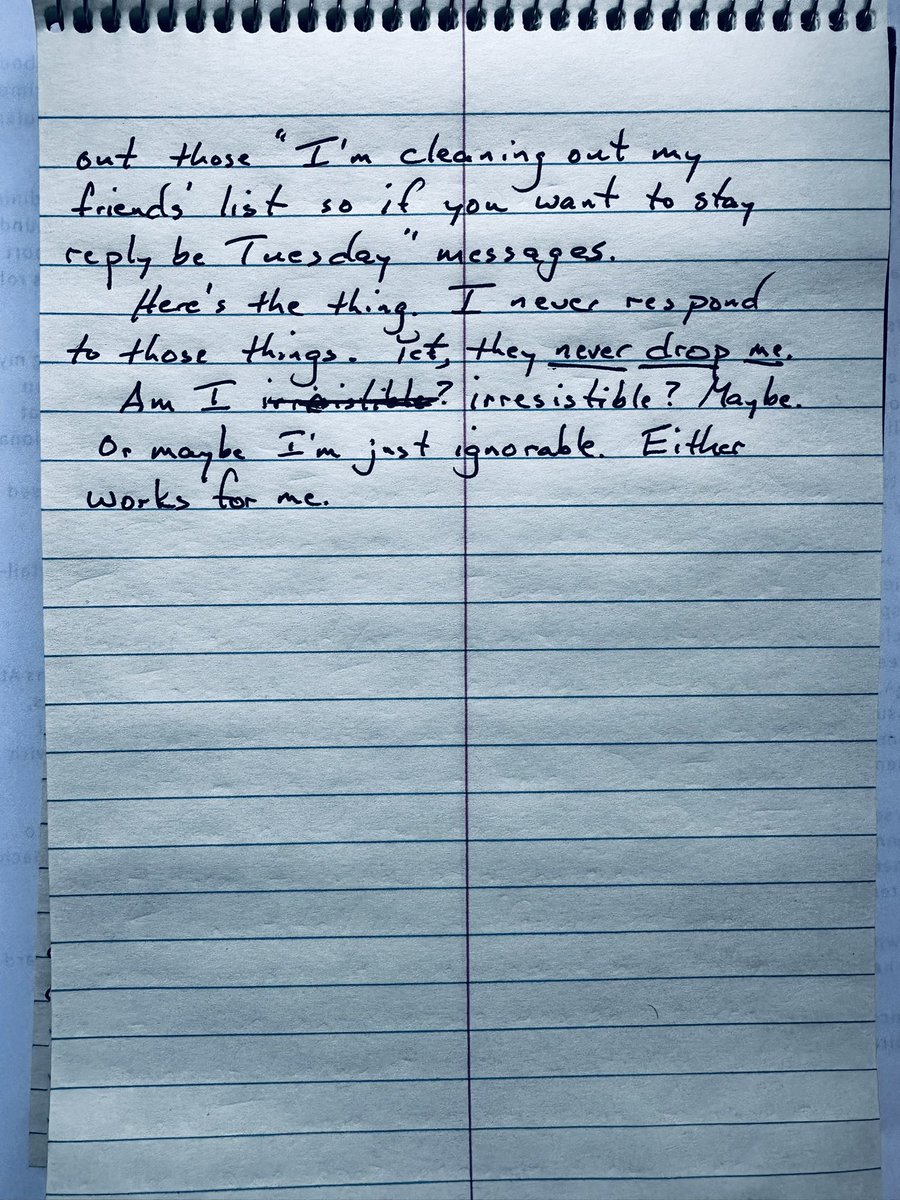 out those "I'm cleaning out my
friends' list so if you want to stay
reply be Tuesday" messages.
Here's the thing. I never respond
to those things. Yet, they never drop me.
Am I irrisistible? irresistible? Maybe.
Or maybe I'm just ignorable. Either
works for me.